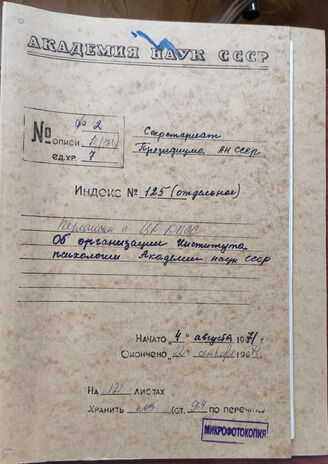 АКАДЕМИЯ НАУК СССР
ф 2
№ ОПИСИ 1 (1971)
ЕД. ХР. 7
Секретариат
Президиума АН СССР
Индекс № 125 (отдельное)
Переписка с ЦК КПСС
Об организации Института
психологии Академии наук СССР
НАЧАТО „4" августа 1971г.
ОКОНЧЕНО сентября
НА 121 ЛИСТАХ
ХРАНИТЬ (СТ. 94 ПО ПЕРЕЧНЮ
МИКРОФОТОКОПИЯ